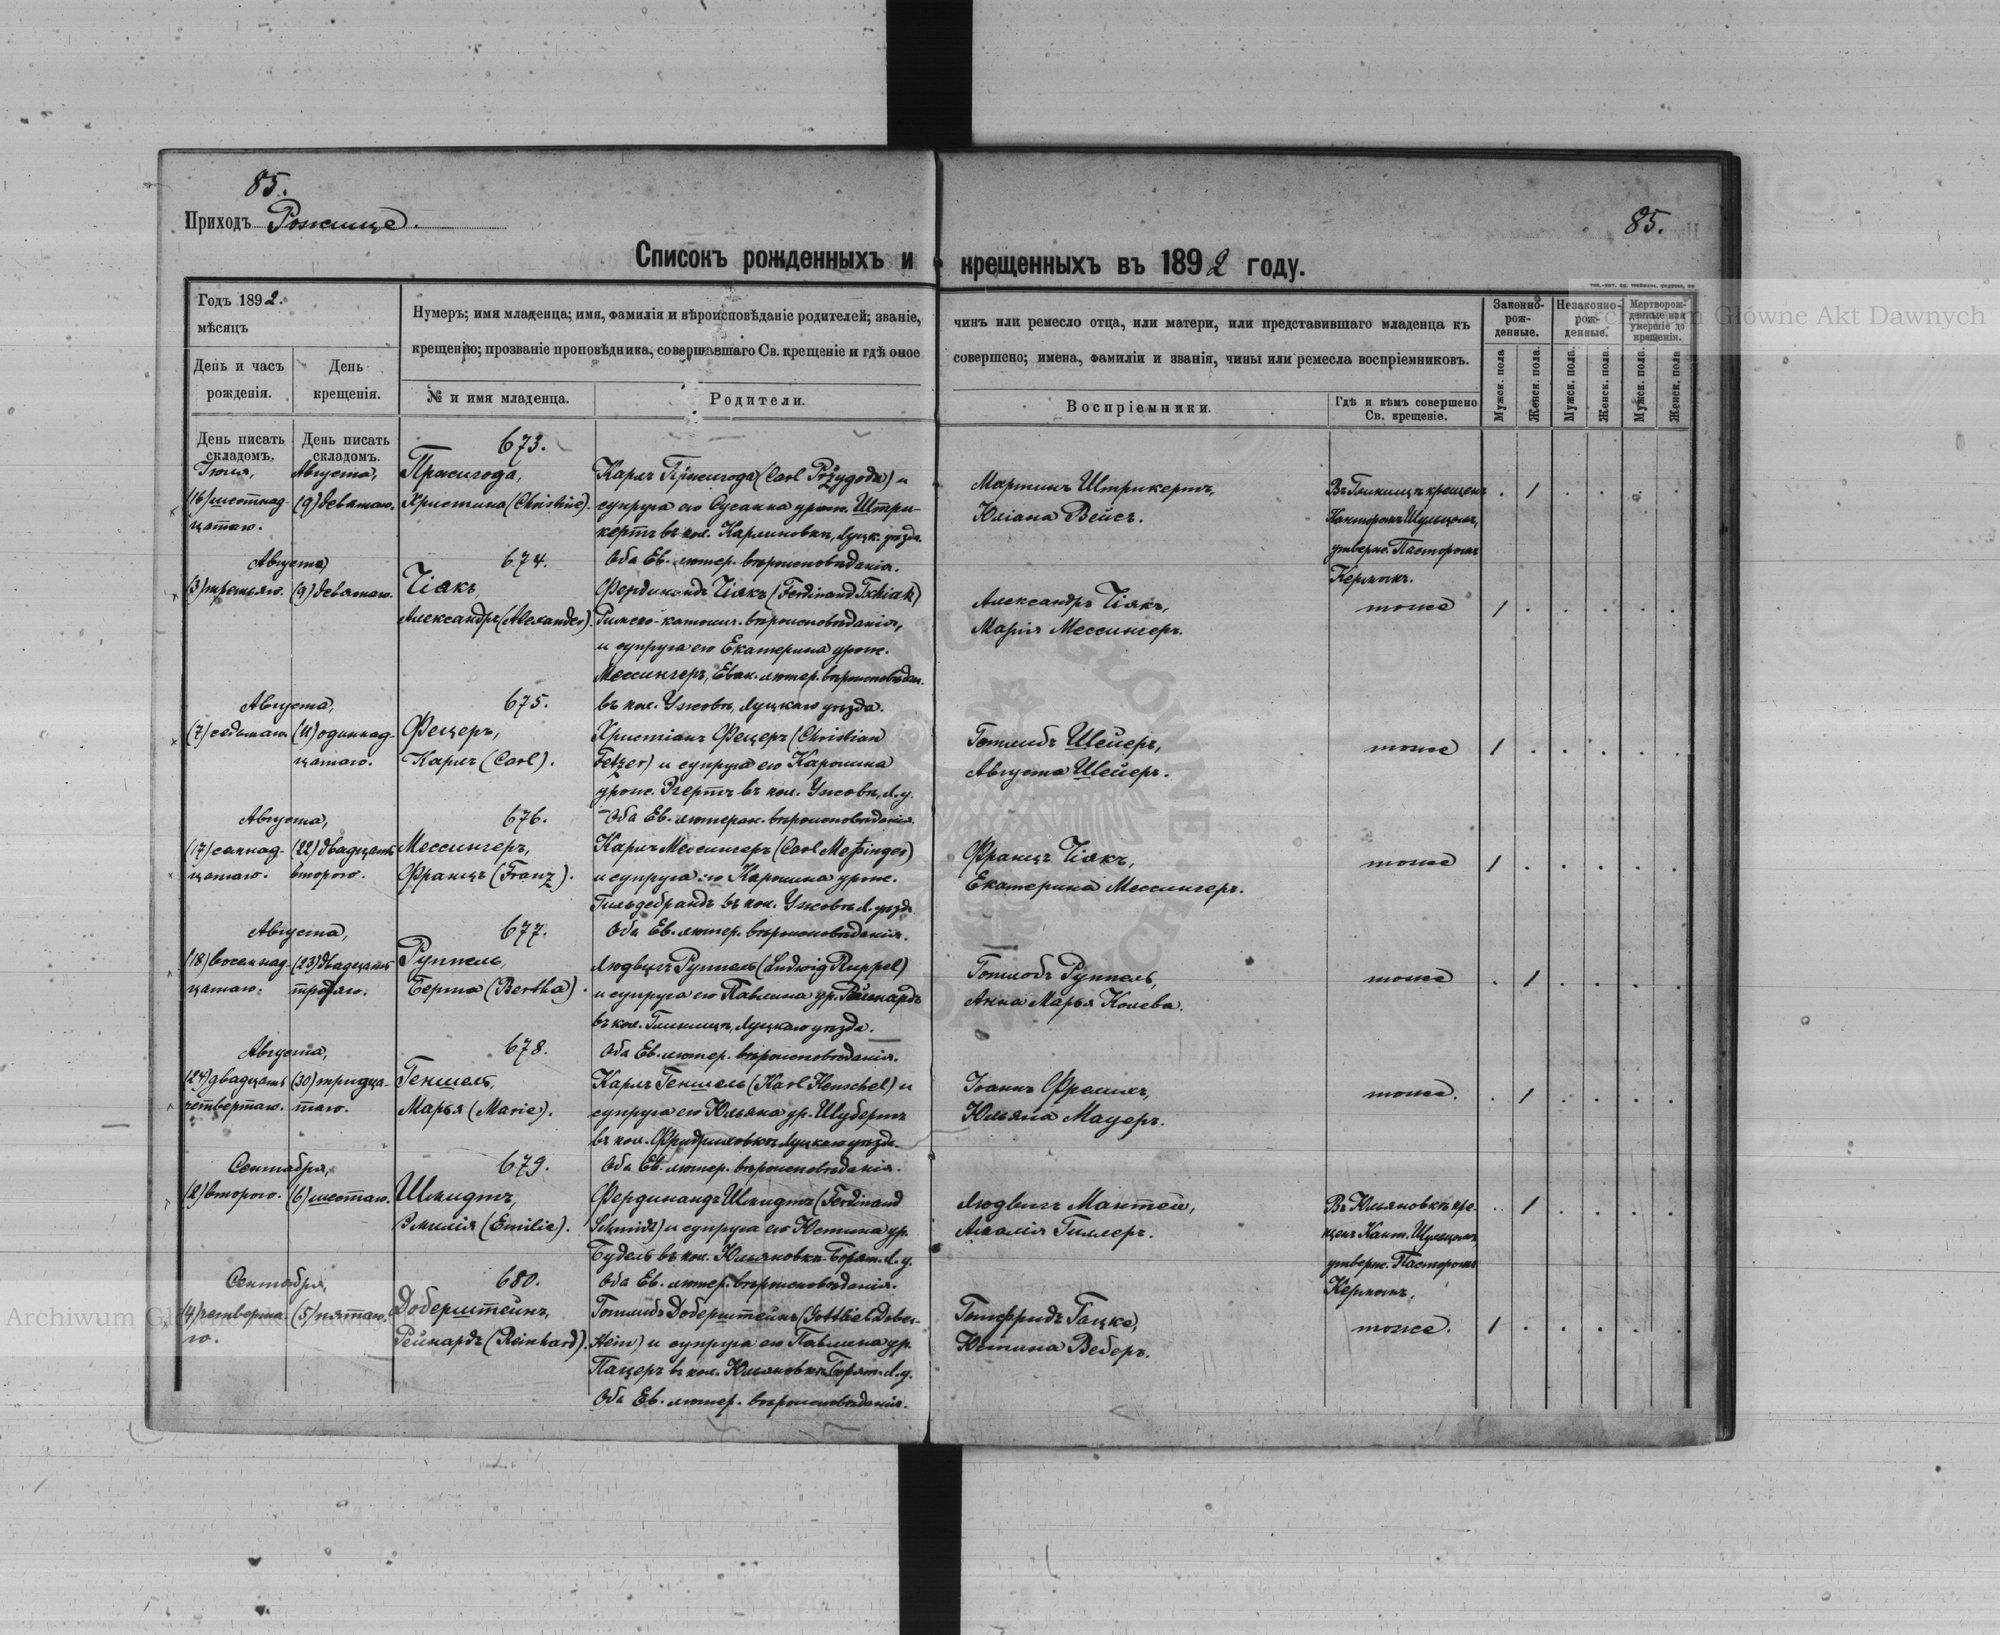 85.
85.
Приходъ Рожище.
Списокъ рожденныхъ и крещенныхъ въ 1892 году.
Годъ 1892.
мѣсяцъ
День и часъ рожденія.
День крещенія.
Нумеръ; имя младенца; имя, фамилія и вѣроисповѣданіе родителей; званіе,
чинъ или ремесло отца, или матери, или представившаго младенца къ
крещенію; прозваніе проповѣдника, совершавшаго Св. крещеніе и гдѣ оное
совершено; имена, фамиліи и званія, чины или ремесла воспріемниковъ.
№ и имя младенца.
Родители.
Воспріемники.
Гдѣ и кѣмъ совершено Св. крещеніе.
Законно-рож-денные.
Незаконно-рож-денные.
Мертворож-денные или умершіе до крещенія.
Мужск. пола
Женск. пола.
Мужск. пола.
Женск. пола.
Мужск. пола.
Женск. пола
День писать складомъ.
День писать складомъ.
673.
Іюля,
(16) шестнад-
цатаго.
Августа,
(9) девятаго.
Пржигода,
Христина (Christine).
Карлъ Пржигода (Carl Przygoda) и
супруга его Сусанна урож. Штри-
кертъ въ кол. Карлиновкѣ, Луцк. уѣзда.
Оба Ев. лютер. вѣроисповѣданія.
Мартинъ Штрикертъ,
Юліана Вейсъ.
крещенъ
Канторомъ Шульцомъ,
утвержд. Пасторомъ
Кермомъ.
1
674.
Августа,
(3) третьяго.
(9) девятаго.
Чіакъ,
Александръ (Alexander).
Фердинандъ Чіакъ (Ferdinand Tschiak)
Римско-католич. вѣроисповѣданія,
и супруга его Екатерина урож.
Мессингеръ, Еван. лютер. вѣроисповѣдан.
въ кол. Ужовѣ, Луцкаго уѣзда.
Александръ Чіакъ,
Марія Мессингеръ.
тоже
1
675.
Августа,
(7) седьмаго
(11) одиннад-
цатаго.
Фецеръ,
Карлъ (Carl).
Христіанъ Фецеръ (Christian
Fetzer) и супруга его Каролина
урож. Эгертъ въ кол. Ужовѣ, Л. у.
Оба Ев. лютеран. вѣроисповѣданія.
Готлибъ Шейеръ,
Августа Шейеръ.
тоже
1
676.
Августа,
(17) семнад-
цатаго.
(22) двадцать
второго.
Мессингеръ,
Францъ (Franz).
Карлъ Мессингеръ (Carl Meßinger)
и супруга его Каролина урож.
Гильдебрандъ въ кол. Ужовѣ Л. уѣзда
Оба Ев. лютер. вѣроисповѣданія.
Францъ Чіакъ,
Екатерина Мессингеръ.
тоже
1
677.
Августа,
(18) восемнад-
цатаго.
(23) двадцать
третяго.
Руппель,
Берта (Bertha).
Людвигъ Руппель (Ludwig Ruppel)
и супруга его Павлина ур. Рейнардъ
Луцкаго уѣзда.
Оба Ев. лютер. вѣроисповѣданія.
Готлобъ Руппель,
Анна Марья Колева.
тоже
1
678.
Августа,
(24) двадцать
четвертаго.
(30) тридца-
таго.
Геншель,
Марья (Marie).
Карлъ Геншель (Karl Henschel) и
супруга его Юльяна ур. Шубертъ
въ кол. Фридриховкѣ Луцкаго уѣзда.
Оба Ев. лютер. вѣроисповѣданія.
Іоганъ Фрелихъ,
Юльяна Мауеръ.
тоже.
1
679.
Сентября,
(2) второго.
(6) шестаго.
Шмидтъ,
Эмилія (Emilie).
Фердинандъ Шмидтъ (Ferdinand
Schmidt) и супруга его Юстина ур.
Будель въ кол. Юльяновкѣ-Борят. Л. у.
Оба Ев. лютер. вѣроисповѣданія.
Людвигъ Мантей,
Амалія Гиллеръ.
Въ Юльяновкѣ кре-
щенъ Кант. Шульцомъ,
утвержд. Пасторомъ
Кермомъ.
1
680.
Сентября,
(4) четверта-
го.
(5) пятаго.
Доберштейнъ,
Рейнардъ (Reinhard).
Готлибъ Доберштейнъ (Gottlieb Dober-
stein) и супруга его Павлина ур.
Пацеръ въ кол. Юльяновкѣ Борят. Л. у.
Оба Ев. лютер. вѣроисповѣданія.
Готфридъ Гацке,
Юстина Веберъ.
тоже.
1
Archiwum Główne Akt Dawnych
Archiwum Główne Akt Dawnych